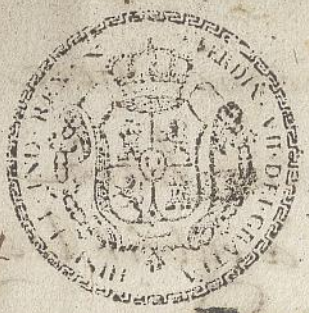 FERDIN. VII. DEI GRATIA
HISP. ET IND. REX.